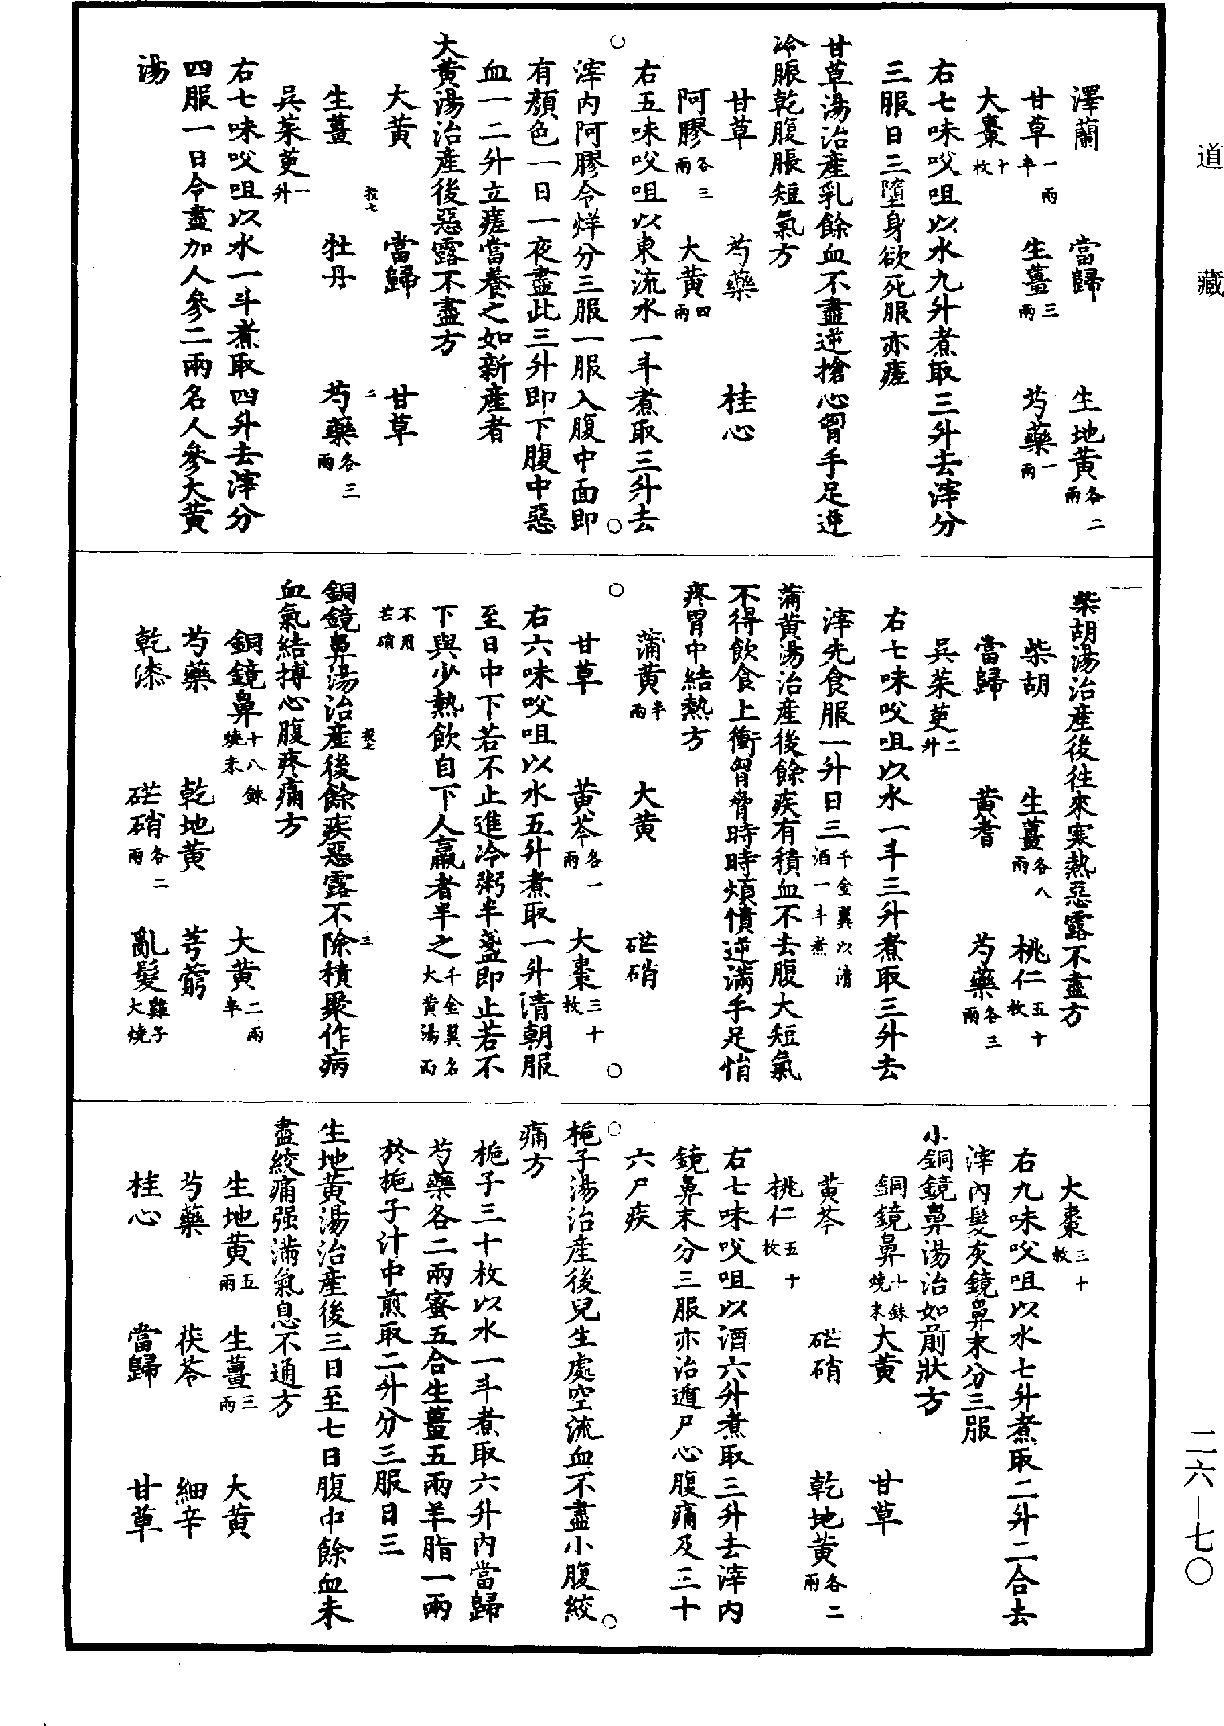 道藏
澤蘭　當歸　生地黃各二兩
甘草一兩半　生薑三兩　芍藥一兩
大棗十枚
右七味㕮咀以水九升煮取三升去滓分
三服日三墮身欲死服亦瘥
甘草湯治產乳餘血不盡逆搶心胷手足逆
冷脤乾腹脹短氣方
甘草　芍藥　桂心
阿膠各三兩　大黃四兩
右五味㕮咀以東流水一斗煮取三升去
滓內阿膠令烊分三服一服入腹中面即
有顏色一日一夜盡此三升即下腹中惡
血一二升立瘥當養之如新產者
大黃湯治產後惡露不盡方
大黃　當歸　甘草
生薑　牡丹　芍藥各三兩
吳茱萸一升
右七味㕮咀以水一斗煮取四升去滓分
四服一日令盡加人參二兩名人參大黃
湯
柴胡湯治產後往來寒熱惡露不盡方
柴胡　生薑各八兩　桃仁五十枚
當歸　黃耆　芍藥各三兩
吳茱萸二升
右七味㕮咀以水一斗三升煮取三升去
滓先食服一升日三千金翼以清酒一斗煮
蒲黃湯治產後餘疾有積血不去腹大短氣
不得飲食上衝胷脅時時煩憒逆滿手足悁
疼胃中結熱方
蒲黃半兩　大黃　硭硝
甘草　黃芩各一兩　大棗三十枚
右六味㕮咀以水五升煮取一升清朝服
至日中下若不止進冷粥半盞即止若不
下與少熱飲自下人羸者半之千金翼名大黃湯而
不用芒硝
銅鏡鼻湯治產後餘疾惡露不除積聚作病
血氣結搏心腹疼痛方
銅鏡鼻十八銖燒末　大黃二兩半
芍藥　乾地黃　芎藭
乾漆　硭硝各二兩　亂髮雞子大燒
大棗三十枚
右九味㕮咀以水七升煮取二升二合去
滓內髮灰鏡鼻末分三服
小銅鏡鼻湯治如前狀方
銅鏡鼻十銖燒末　大黃　甘草
黃芩　硭硝　乾地黃各二兩
桃仁五十枚
右七味㕮咀以酒六升煮取三升去滓內
鏡鼻末分三服亦治遁尸心腹痛及三十
六尸疾
梔子湯治產後兒生處空流血不盡小腹絞
痛方
梔子三十枚以水一斗煮取六升內當歸
芍藥各二兩蜜五合生薑五兩羊脂一兩
於梔子汁中煎取二升分三服日三
生地黃湯治產後三日至七日腹中餘血未
盡絞痛强滿氣息不通方
生地黃五兩　生薑三兩　大黃
芍藥　茯苓　細辛
桂心　當歸　甘草
二六—七〇